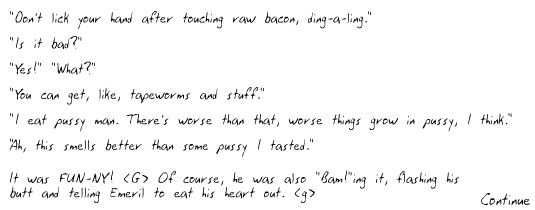 "Don't lick your hand after touching raw bacon, ding-a-ling."
"Is it bad?"
"Yes!" "What?"
"You can get, like, tapeworms and stuff."
"I eat pussy man. There's worse than that, worse things grow in pussy, I think."
"Ah, this smells better than some pussy I tasted."
It was FUN-NY! <G> Of course, he was also "Bam!"ing it, flashing his
butt and telling Emeril to eat his heart out. <g>
Continue